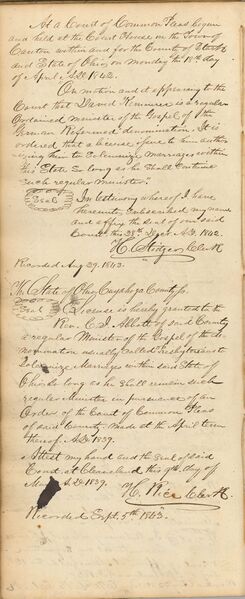 At a Court of Common Pleas begun
and held at the Court House in the Town of
Canton within and for the County of Stark
and State of Ohio on monday the 18th day
of April, A.D. 1842.
On motion and it appearing to the
Court that David Kemmerer is a regular
Ordained minister of the Gospel of the
German Reformed denomination. It is
ordered that a license issue to him author
izing him to Solemnize marriages within
this State so long as he shall continue
such regular Minister.
Seal
In testimony whereof I have
hereunto subscribed my name
and affixed the seal of our said
Court this 28th Dec. A.D. 1842.
Clerk
Recorded Aug 29. 1843.
The State of Ohio Cuyahoga County ss.
Seal
License is hereby granted to the
Rev. Abbott of said County
a regular Minister of the Gospel of the de
nomination usually called Presbyterian to
Solemnize Marriages within said State of
Ohio so long as he shall remain such
regular Minister in pursuance of an
Order of the Court of Common Pleas
of said County made at the April term
thereof A.D. 1839.
Attest my hand and the seal of said
Court at Cleaveland this 9th day of
A.D. 1839.
H. Rice Clerk
Recorded Sept. 5th 1843.